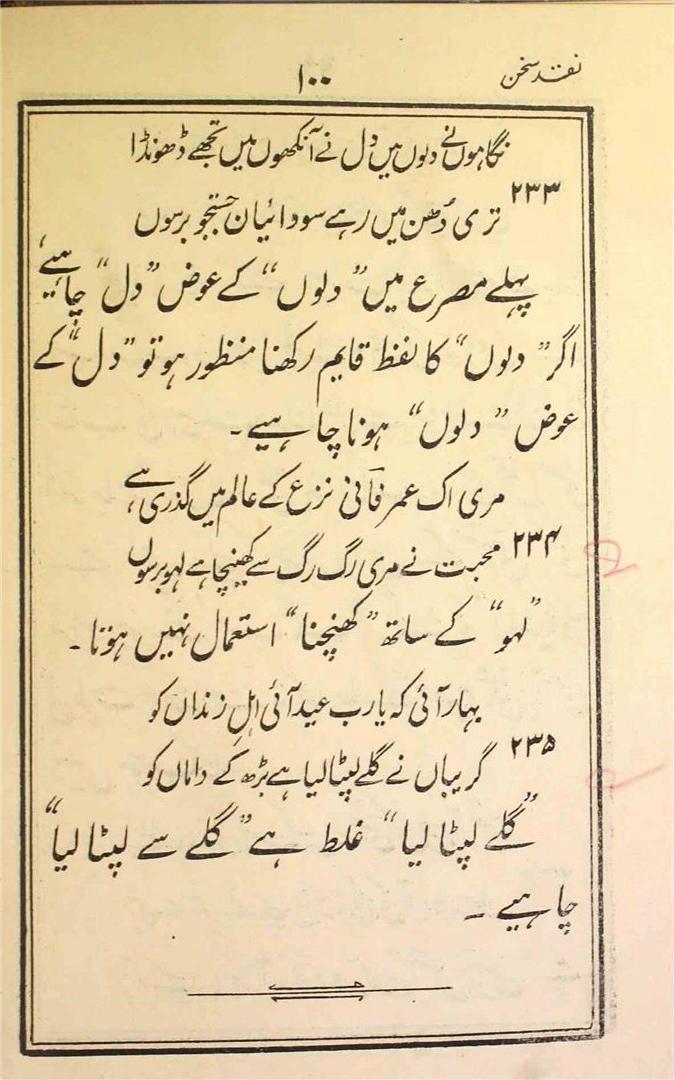 نقد سخن
۱۰۰
نگاہوں نے دلوں میں دل نے آنکھوں میں تجھے ڈھونڈا
۲۳۳
تری دُھن میں رہے سودائیان جستجو برسوں
پہلے مصرع میں "دلوں" کے عوض "دل" چاہیے،
اگر "دلوں" کا لفظ قایم رکھنا منظور ہو تو "دل" کے
عوض "دلوں" ہونا چاہیے ۔
مری اک عمر فانی نزع کے عالم میں گذری ہے،
۲۳۴
محبت نے مری رگ رگ سے کھینچا ہے لہو برسوں
"لہو" کے ساتھ "کھنچنا" استعمال نہیں ہوتا ۔
بہار آئی کہ یارب عید آئی اہلِ زنداں کو
۲۳۵
گریباں نے گلے لپٹا لیا ہے بڑھ کے داماں کو
"گلے لپٹا لیا" غلط ہے "گلے سے لپٹا لیا"
چاہیے ۔